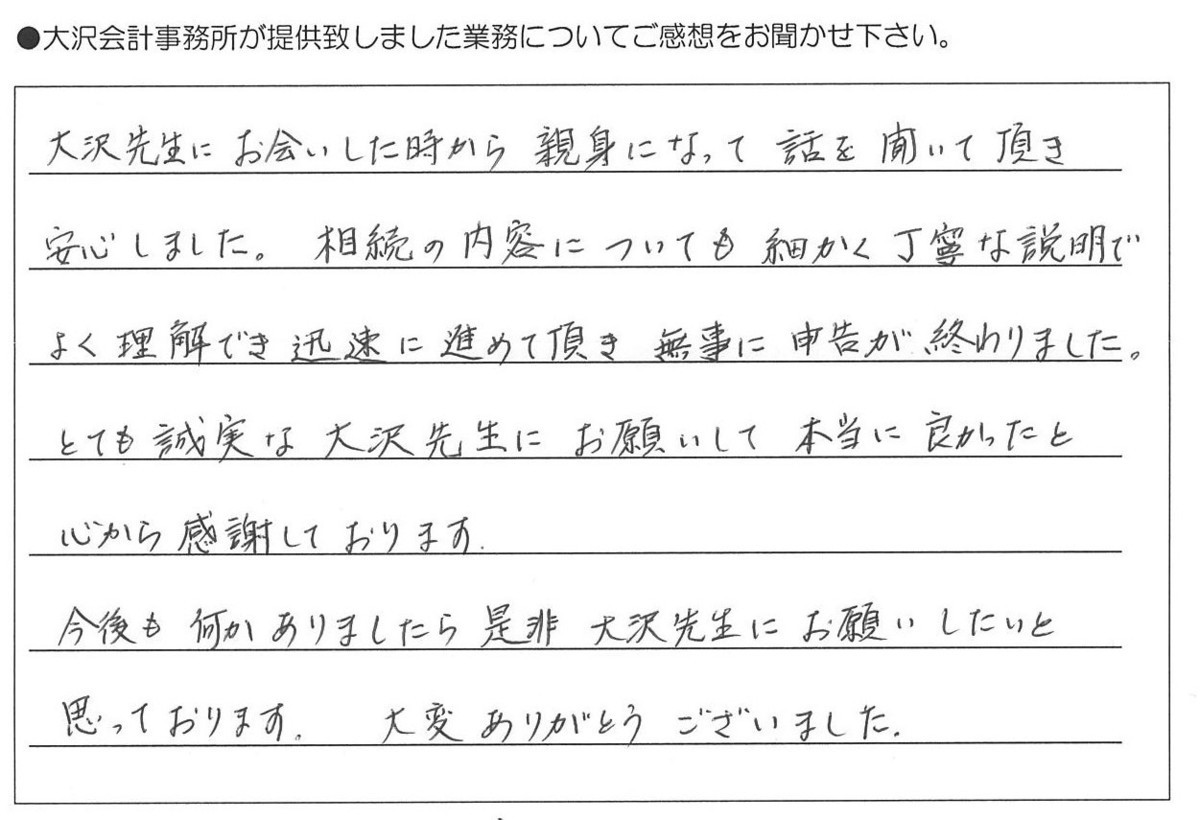 ●大沢会計事務所が提供致しました業務についてご感想をお聞かせ下さい。
大沢先生にお会いした時から親身になって話を聞いて頂き
安心しました。相続の内容についても細かく丁寧な説明で
よく理解でき迅速に進めて頂き無事に申告が終わりました。
とても誠実な大沢先生にお願いして本当に良かったと
心から感謝しております.
今後も何かありましたら是非大沢先生にお願いしたいと
思っております. 大変ありがとうございました.